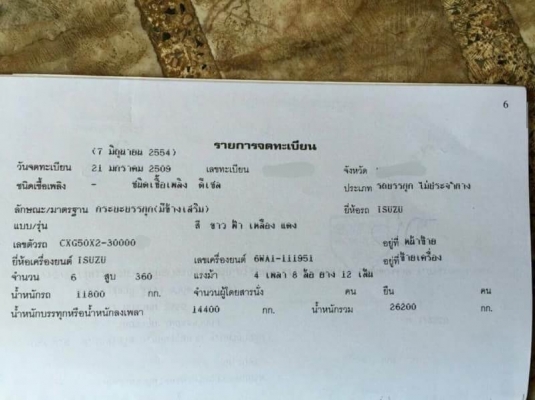 6
รายการจดทะเบียน
(7 มิถุนายน 2554)
วันจดทะเบียน 21 มกราคม 2509 เลขทะเบียน จังหวัด
ชนิดเชื้อเพลิง - ชนิดเชื้อเพลิง ดีเซล ประเภท รถบรรทุก ไม่ประจำทาง
ลักษณะ/มาตรฐาน กระบะบรรทุก(มีข้างเสริม) ยี่ห้อรถ ISUZU
แบบ/รุ่น สี ขาว ฟ้า เหลือง แดง
เลขตัวรถ CXG50X2-30000 อยู่ที่ หน้าซ้าย
ยี่ห้อเครื่องยนต์ ISUZU เลขเครื่องยนต์ 6WA1-111951 อยู่ที่ ซ้ายเครื่อง
จำนวน 6 สูบ 360 แรงม้า 4 เพลา 8 ล้อ ยาง 12 เส้น
น้ำหนักรถ 11800 กก. จำนวนผู้โดยสารนั่ง คน ยืน คน
น้ำหนักบรรทุกหรือน้ำหนักลงเพลา 14400 กก. น้ำหนักรวม 26200 กก.